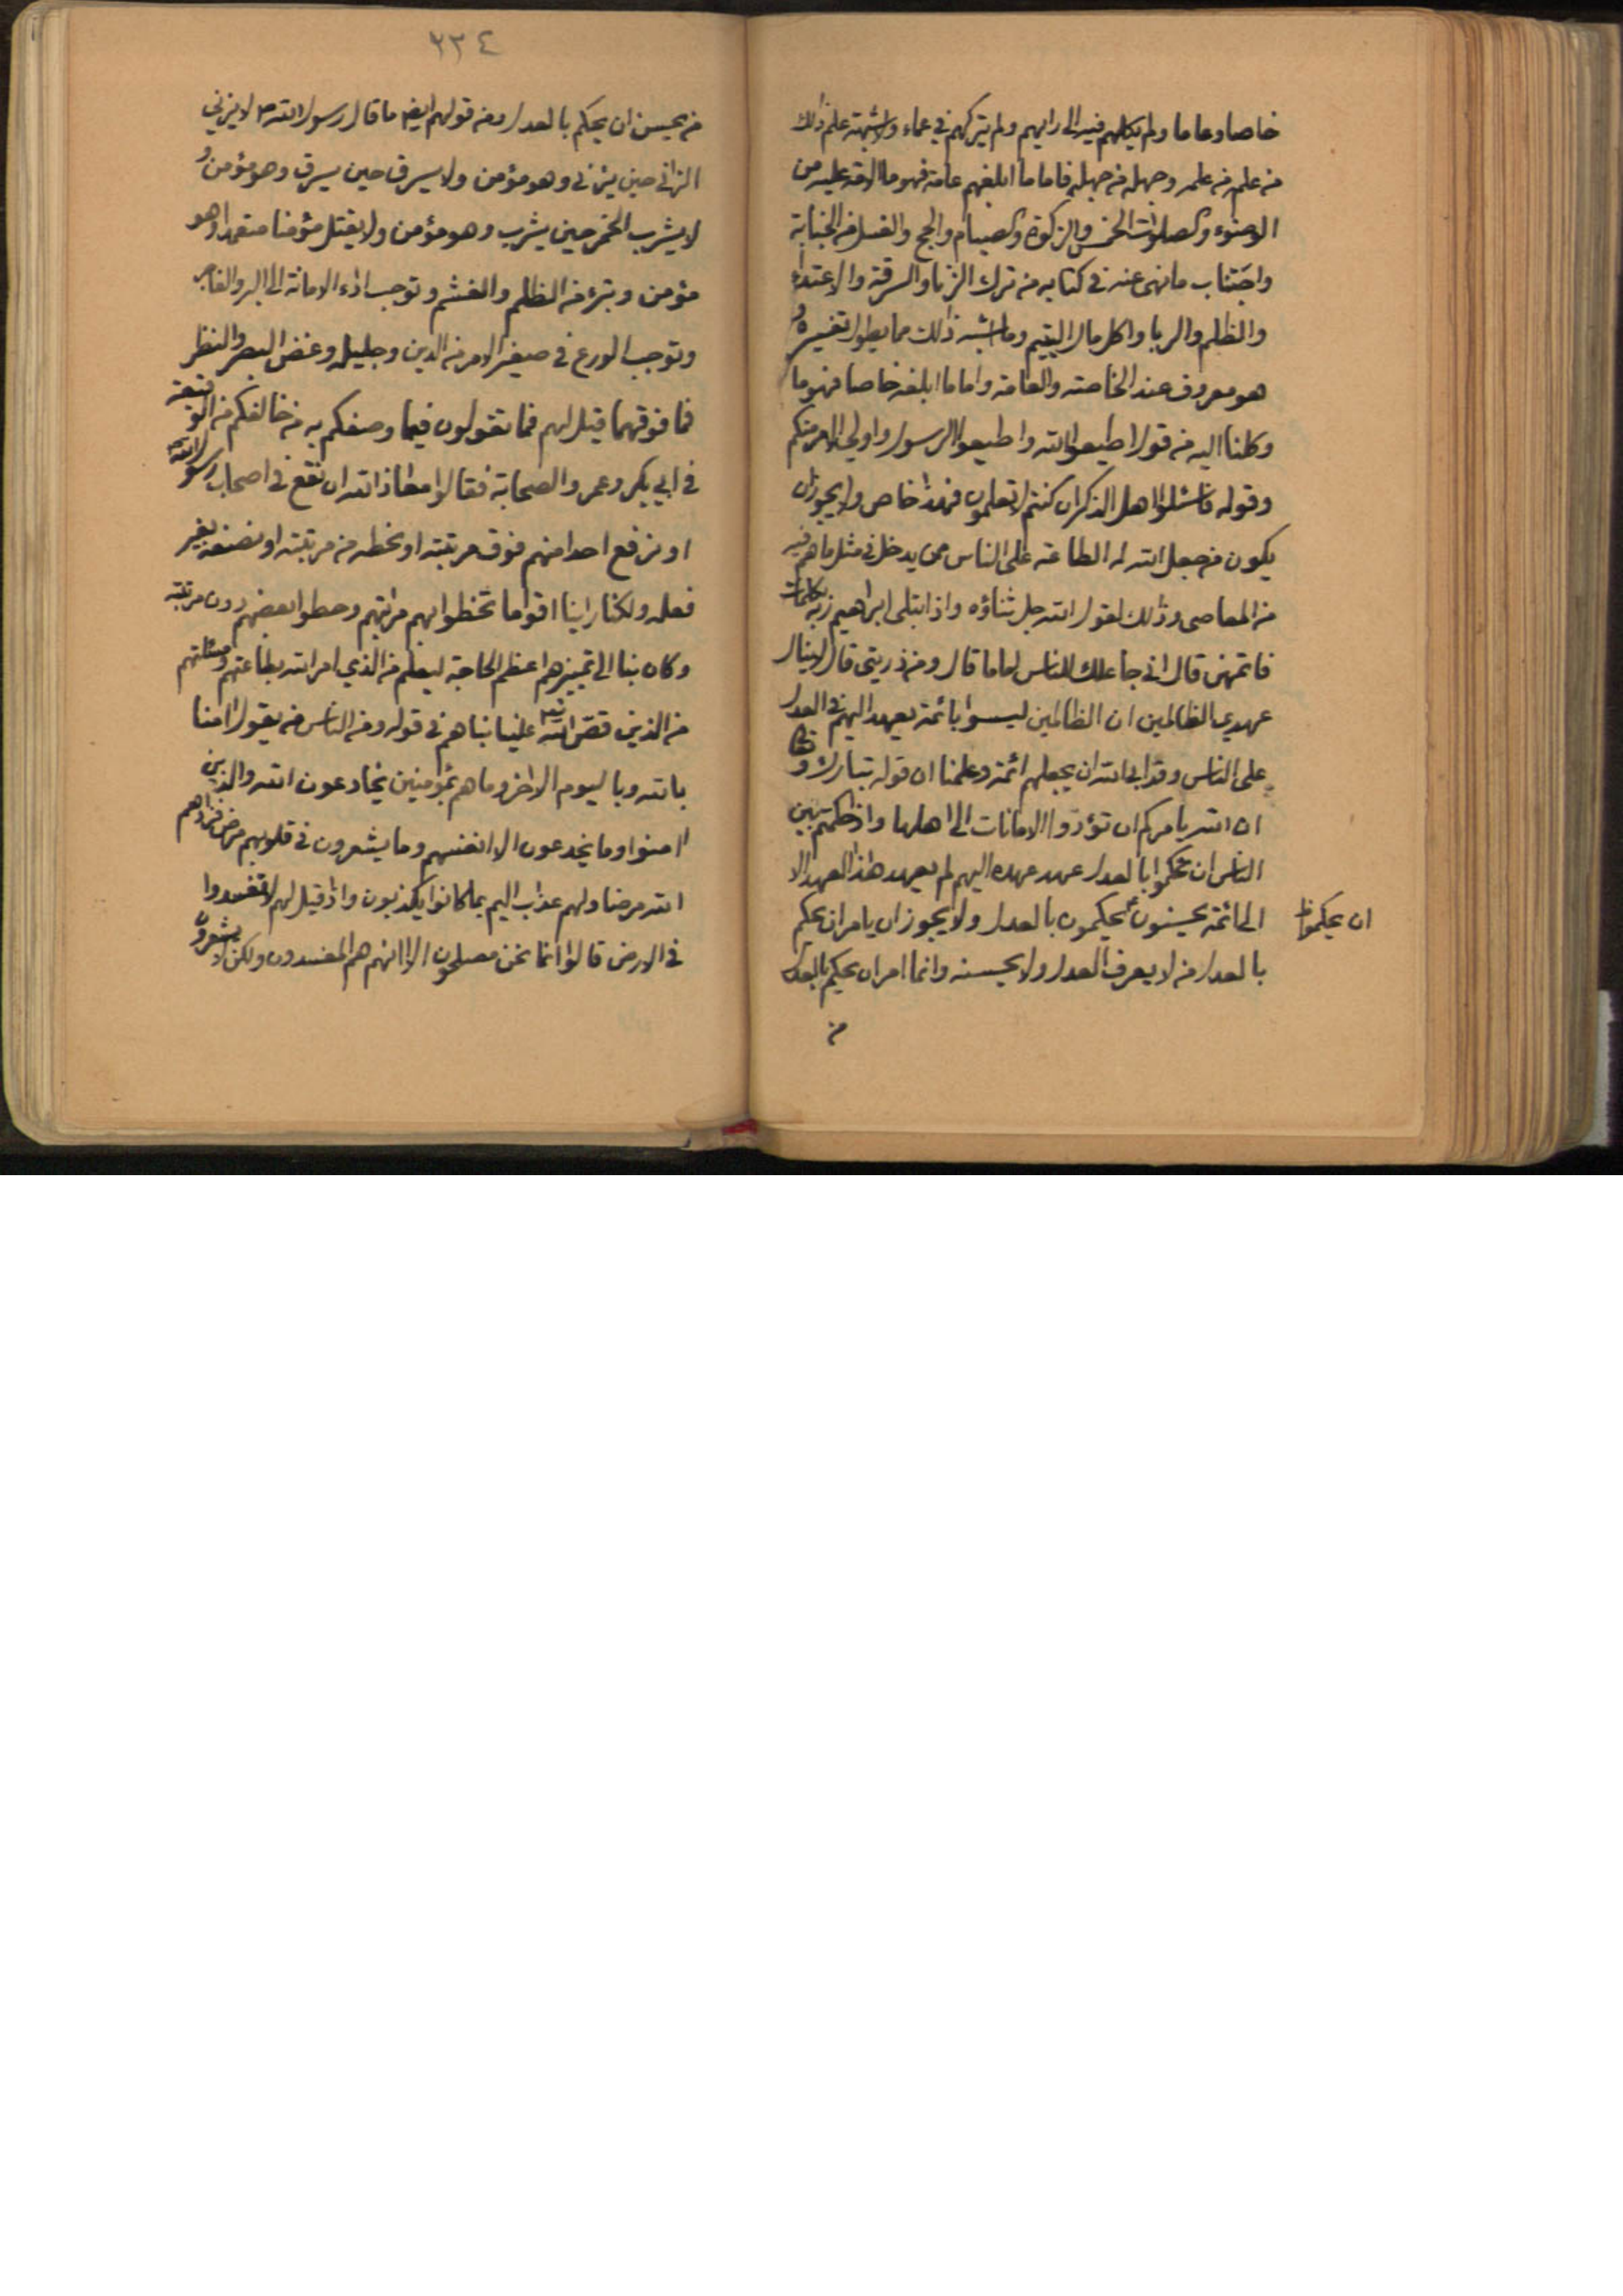 خاصا وعاما ولم يكلهم فيه الى رايهم ولم يتركهم في عماء ولا شبهة علم ذلك
من علمه من علمه وجهله من جهله فاما ما ابلغهم عامة فهو ما الامة عليه من
الوضوء والصلوات الخمس والزكوة والصيام والحج والغسل من الجنابة
واجتناب ما نهى عنه في كتابه من ترك الزنا والسرقة والاعتداء
والظلم والربا واكل مال اليتيم وما اشبه ذلك مما يطول تفسيره و
هو معروف عند الخاصة والعامة واما ما ابلغه خاصا فهو ما
وكلنا اليه من قول اطيعوا الله واطيعوا الرسول واولي الامر منكم
وقوله فاسئلوا اهل الذكر ان كنتم لا تعلمون فهذا خاص ولا يجوز ان
يكون من جعل الله له الطاعة على الناس ممن يدخل في مثل ما هم فيه
من المعاصي وذلك لقول الله جل ثناؤه واذ ابتلى ابراهيم ربه بكلمات
فاتمهن قال اني جاعلك للناس اماما قال ومن ذريتي قال لا ينال
عهدي الظالمين ان الظالمين ليسوا بائمة يعهد اليهم في العدل
على الناس وقد ابى الله ان يجعلهم ائمة وعلمنا ان قوله تبارك و تعا
ان الله يامركم ان تؤدوا الامانات الى اهلها واذا حكمتم بين
الناس ان تحكموا بالعدل عهد عهده اليهم لم يعهد هذا العهد الا
الى ائمة يحسنون يحكمون بالعدل ولا يجوز ان يامر ان يحكم
ان يحكموا ظ
بالعدل من لا يعرف العدل ولا يحسنه وانما امر ان يحكم بالعدل
من
٢٣٤
من يحسن ان يحكم بالعدل ومن قولهم ايضا ما قال رسول الله ص لا يزني
الزاني حين يزني وهو مؤمن ولا يسرق حين يسرق وهو مؤمن و
لا يشرب الخمر حين يشرب وهو مؤمن ولا يقتل مؤمنا متعمدا وهو
مؤمن وتبرء من الظلم والغشم وتوجب اداء الامانة الى البر والفاجر
وتوجب الورع في صغير الامر من الدين وجليله وغض البصر والنظر
فما فوقهما قيل لهم فما تقولون فيما وصفكم به من خالفكم من الوقيعة
في ابي بكر وعمر والصحابة فقالوا معاذ الله ان نقع في اصحاب رسول الله
او نرفع احدا منهم فوق مرتبته او نحطه من مرتبته او نصنعه بغير
فعله ولكنا راينا اقواما تخطوا بهم مراتبهم وحطوا بعضهم دون مرتبته
وكان بنا الى تمييزهم اعظم الحاجة ليعلم من الذي امر الله بطاعتهم ومسئلتهم
من الذين قص الله علينا نباهم في قوله ومن الناس من يقول امنا
بالله وباليوم الاخر وما هم بمؤمنين يخادعون الله والذين
امنوا وما يخدعون الا انفسهم وما يشعرون في قلوبهم مرض فزادهم
الله مرضا ولهم عذاب اليم بما كانوا يكذبون واذا قيل لهم لا تفسدوا
في الارض قالوا انما نحن مصلحون الا انهم هم المفسدون ولكن لا يشعرون